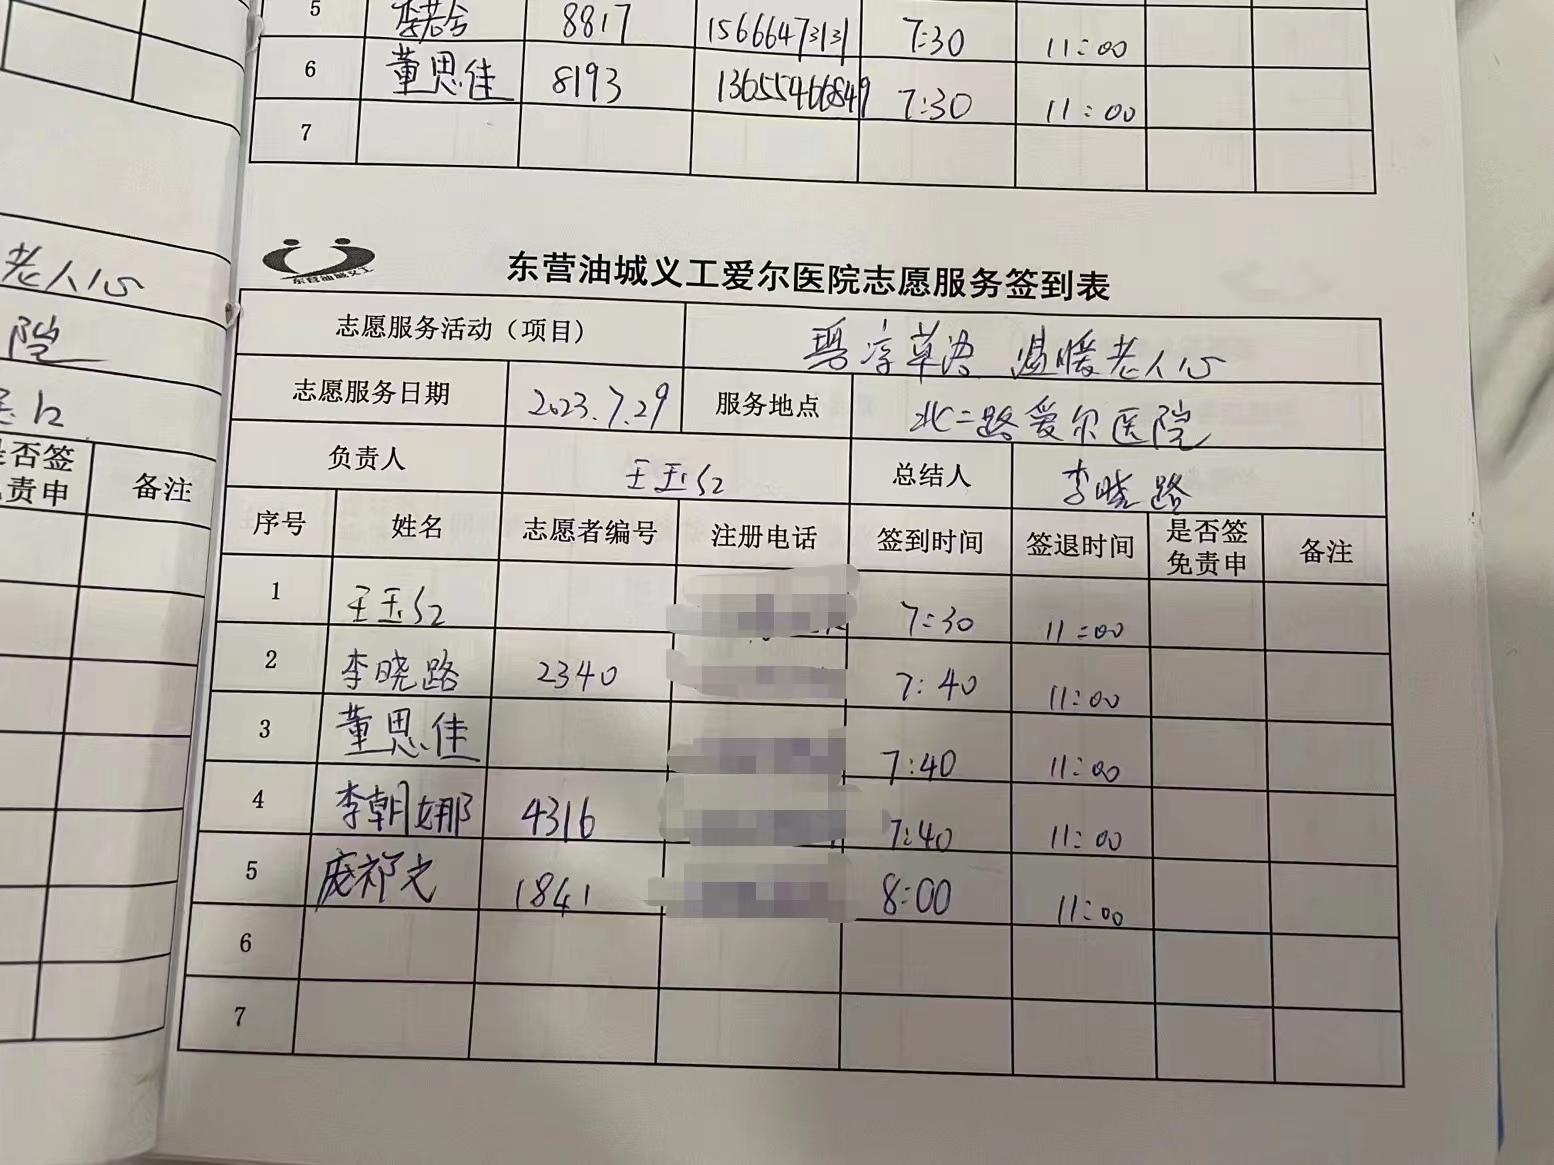 5 李若含 8817 15666473131 7:30 11:00
6 董思佳 8193 13655466849 7:30 11:00
7
老人心
院
是否签
免责申 备注
东营油城义工
东营油城义工爱尔医院志愿服务签到表
志愿服务活动（项目） 温暖老人心
志愿服务日期 2023.7.29 服务地点 北二路爱尔医院
负责人 王玉红 总结人 李晓路
序号 姓名 志愿者编号 注册电话 签到时间 签退时间 是否签
免责申 备注
1 王玉红 7:30 11:00
2 李晓路 2340 7:40 11:00
3 董思佳 7:40 11:00
4 李朝娜 4316 7:40 11:00
5 庞祁文 1841 8:00 11:00
6
7